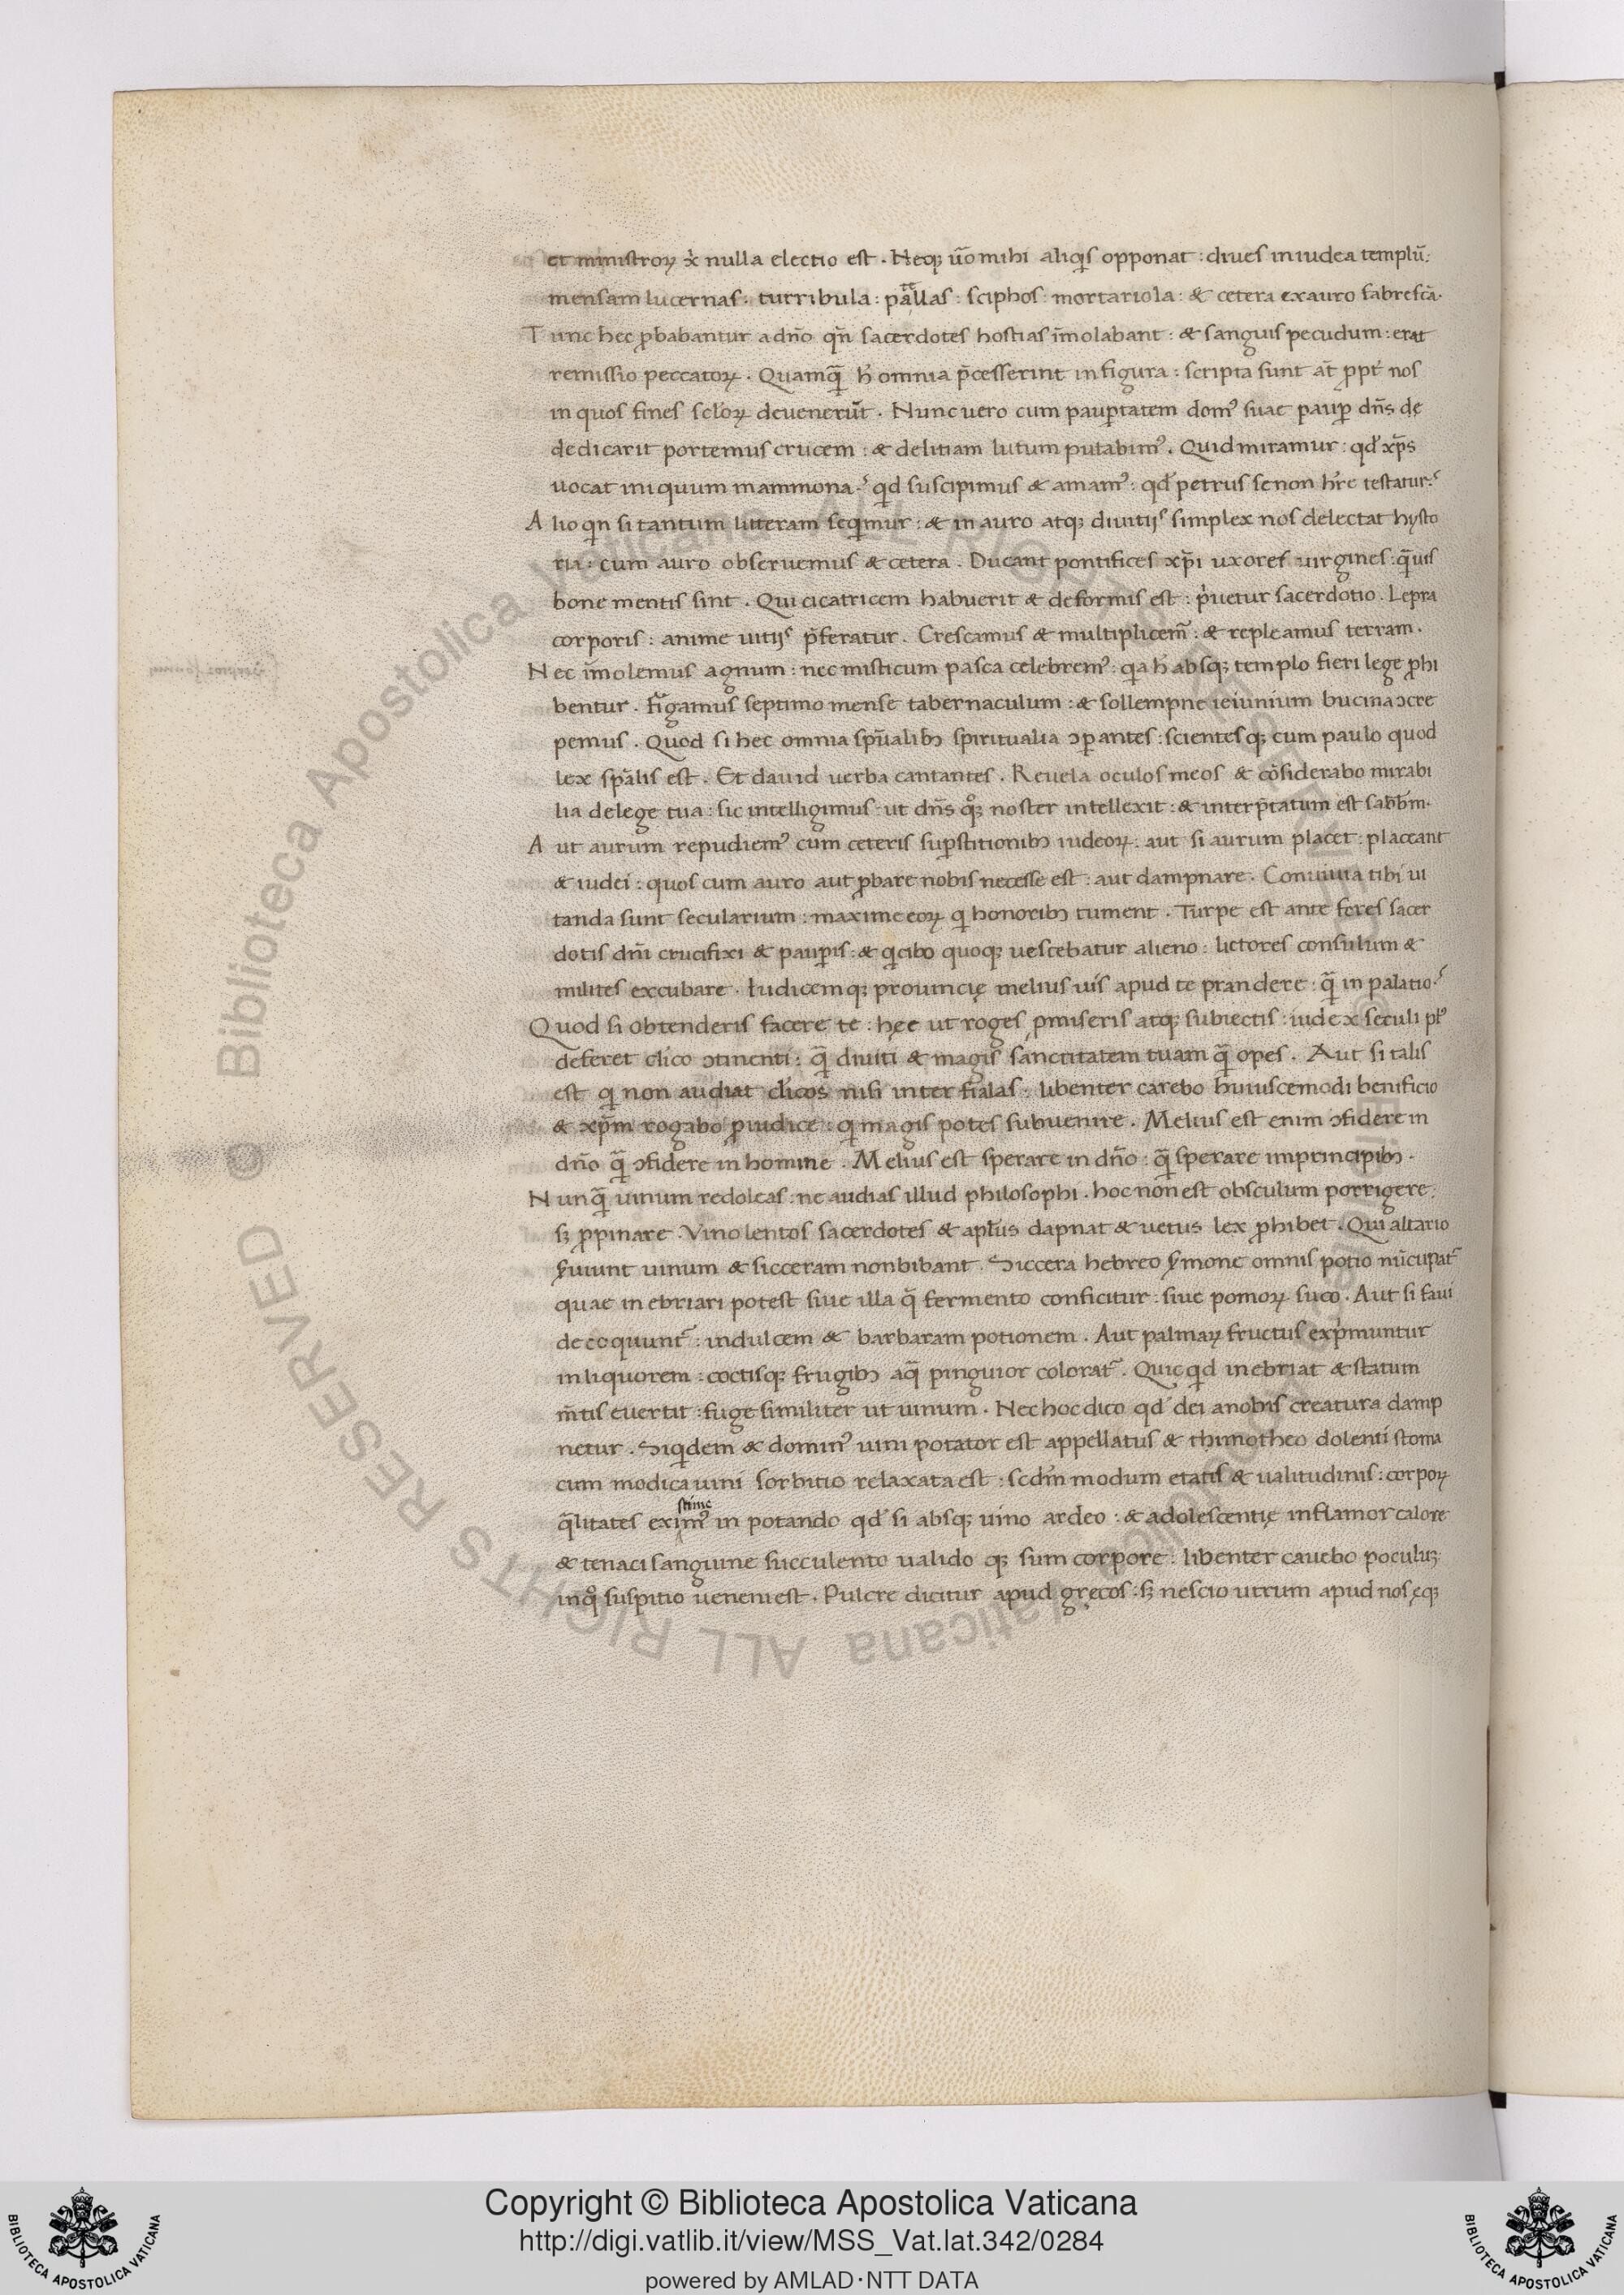 et ministroꝝ xp̄i nulla electio est . Neqꝫ ūo mihi aliqͥs opponat : diues in iudea templū :
mensam lucernas . turribula : patellas : sciphos : mortariola : & cetera ex auro fabrefcā .
Tunc hec ꝓbabantur a dño qn̄ sacerdotes hostias īmolabant : & sanguis pecudum : erat
remissio peccatoꝝ . Quamqͣ̄ h̓ omnia p̄cesserint in figura : scripta sunt at̄ ꝓpt̓ nos
in quos fines sclōꝝ deuenerūt . Nunc uero cum pauꝑtatem domꝰ suae pauꝑ dñs de
dedicarit portemus crucem : & delitiam lutum putabimꝰ . Quid miramur : qd̓ xp̄s
uocat iniquum mammona .ʼ qͥd suscipimus & amamꝰ : qd̓ petrus se non hr̄e testatur .ʼ
Alioqͥn si tantum litteram seqͥmur : & in auro atqꝫ diuitijs simplex nos delectat hysto
ria : cum auro obseruemus & cetera . Ducant pontifices xp̄i uxores uirgines : qͣ̄uis
bone mentis sint . Qui cicatricem habuerit & deformis est : pͥuetur sacerdotio . Lepra
corporis : anime uitijs p̄feratur . Crescamus & multiplicem̃ : & repleamus terram .
Nec īmolemus agnum : nec misticum pasca celebremꝰ : qͥa h̓ absqꝫ templo fieri lege ꝓhi
bentur . Figamus septimo mense tabernaculum : & sollempne ieiunium bucina ↄcre
pemus . Quod si hec omnia spūalibꝫ spiritualia ↄꝑantes : scientesqꝫ cum paulo quod
lex spālis est . Et dauid uerba cantantes . Reuela oculos meos & cōsiderabo mirabi
lia de lege tua : sic intelligimus ut dñs qͦqꝫ noster intellexit : & interp̄tatum est sabb̄m .
Aut aurum repudiemꝰ cum ceteris suꝑstitionibꝫ iudeoꝝ : aut si aurum placet : placeant
& iudei : quos cum auro aut ꝓbare nobis necesse est : aut dampnare . Conuiuia tibi ui
tanda sunt secularium : maxime eoꝝ qͥ honoribꝫ tument . Turpe est ante fores sacer
dotis dn̄i crucifixi & pauꝑis : & qͥ cibo quoqꝫ uescebatur alieno : lictores consulum &
milites excubare . Iudicemqꝫ prouincię melius uis apud te prandere : qͣ̄ in palatio .ʼ
Quod si obtenderis facere te : hęc ut roges ꝓ miseris atqꝫ subiectis : iudex seculi plꝰ
deferet clico ↄtinenti : qͣ̄ diuiti & magis sanctitatem tuam qͣ̄ opes . Aut si talis
est qͥ non audiat clicos nisi inter fialas : libenter carebo huiuscemodi benificio
& xp̄m rogabo ꝓ iudice : qͥ magis potes subuenire . Melius est enim ↄfidere in
dño qͣ̄ ↄfidere in homine . Melius est sperare in dño : qͣ̄ sperare in principibꝫ .
Nunqͣ̄ uinum redoleas : ne audias illud philosophi . hoc non est obsculum porrigere :
sꝫ ꝓpinare . Vinolentos sacerdotes & apl̄us dapnat & uetus lex ꝓhibet . Qui altario
ẜuiunt uinum & sicceram non bibant . Siccera hebreo ẜmone omnis potio nūcupat᷑
quae inebriari potest siue illa q̄ fermento conficitur : siue pomoꝝ suco . Aut si faui
decoquunt᷑ : in dulcem & barbaram potionem . Aut palmaꝝ fructus expͥmuntur
in liquorem : coctisqꝫ frugibꝫ aqͣ̄ pinguior colorat᷑ . Quicqͥd inebriat & statum
m̄tis euertit : fuge similiter ut uinum . Nec hoc dico qd̓ dei a nobis creatura damp
netur . Siqͥdem & dominꝰ uini potator est appellatus & thimotheo dolenti stoma
cum modica uini sorbitio relaxata est : scdm̄ modum etatis & ualitudinis : corpoꝝ
qͣ̄litates existimemꝰ in potando qd̓ si absqꝫ uino ardeo : & adolescentię inflamor calore
& tenaci sanguine succulento ualido qꝫ sum corpore : libenter cauebo poculuꝫ .
in qͦ suspitio ueneni est . Pulcre dicitur apud gręcos : sꝫ nescio utrum apud nos ęqꝫ
Copyright © Biblioteca Apostolica Vaticana
http://digi.vatlib.it/view/MSS_Vat.lat.342/0284
powered by AMLAD·NTT DATA
BIBLIOTECA APOSTOLICA VATICANA
BIBLIOTECA APOSTOLICA VATICANA
© Biblioteca Apostolica Vaticana ALL RIGHTS RESERVED
© Biblioteca Apostolica Vaticana ALL RIGHTS RESERVED